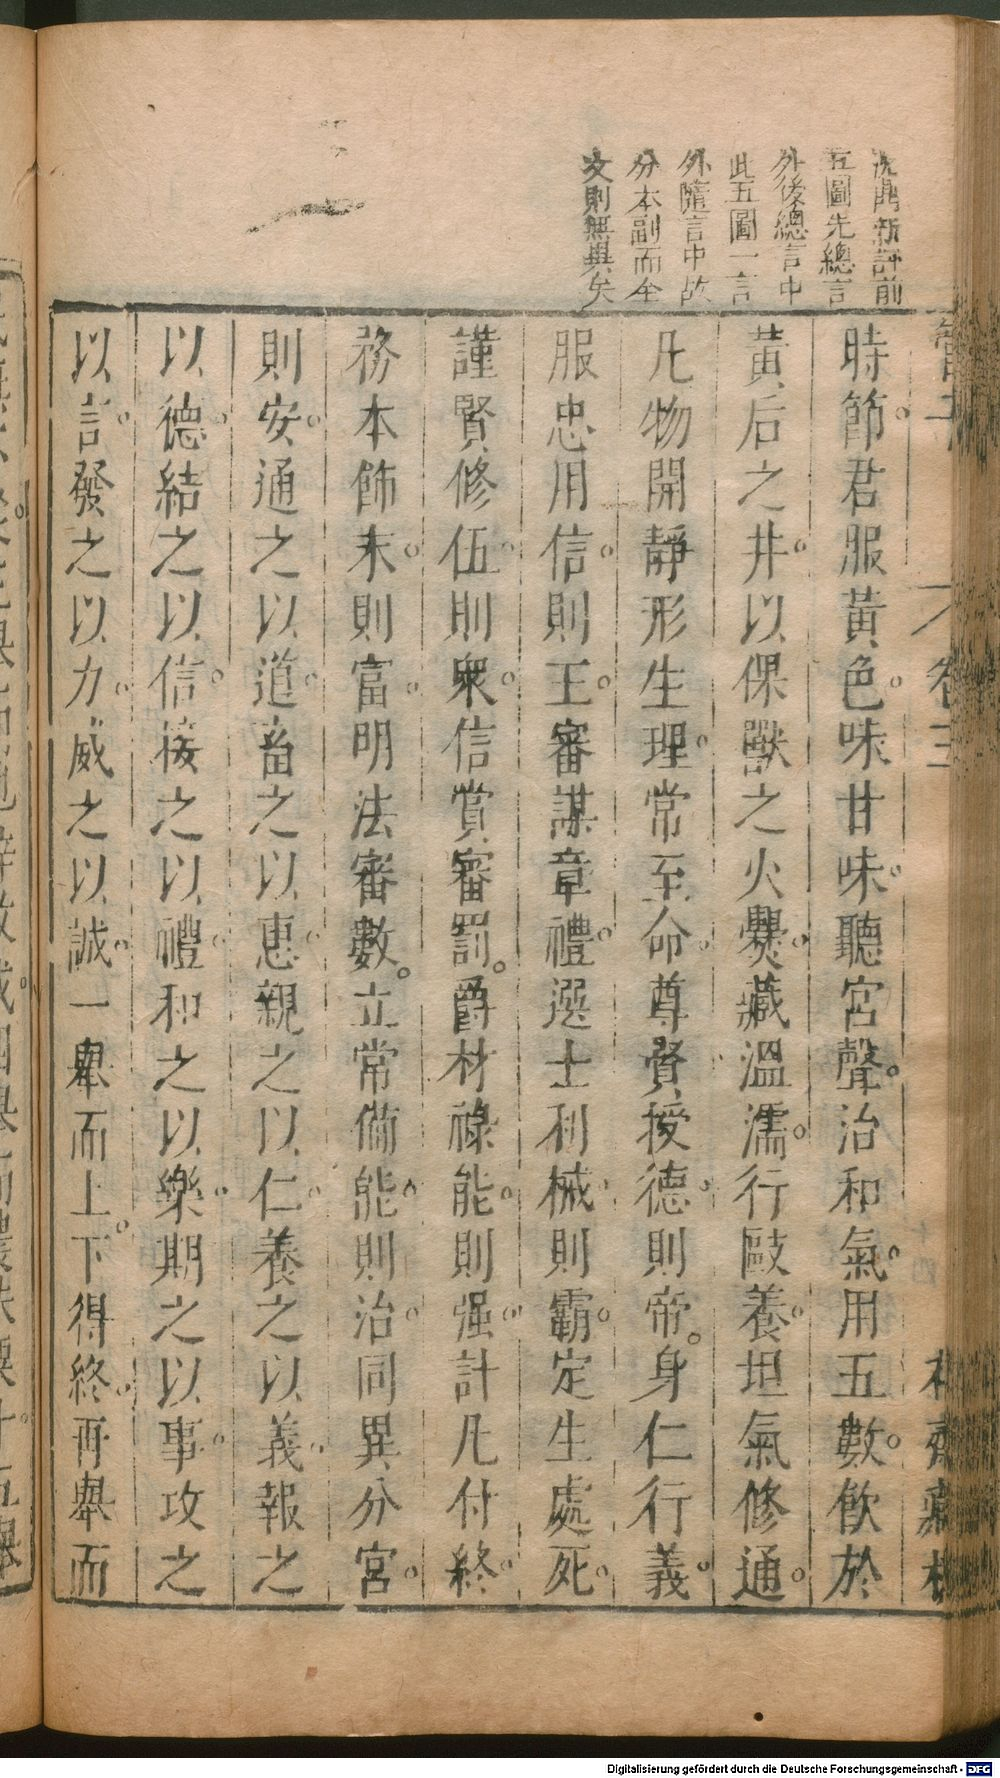 沈鼎新評前
五圖先總言
外後總言中
此五圖一言
外隨言中故
分本副而全
文則無異矣
管子
卷三
時節君服黃色味甘味聽宮聲治和氣用五數飲於
黃后之井以倮獸之火爨藏溫濡行敺養坦氣修通
凡物開靜形生理常至命尊賢授德則帝身仁行義
服忠用信則王審謀章禮選士利械則霸定生處死
謹賢修伍則衆信賞審罰爵材祿能則强計凡付終
務本飾末則富明法審數立常備能則治同異分官
則安通之以道畜之以惠親之以仁養之以義報之
以德結之以信接之以禮和之以樂期之以事攻之
以言發之以力威之以誠一舉而上下得終再舉而
Digitalisierung gefördert durch die Deutsche Forschungsgemeinschaft - DFG